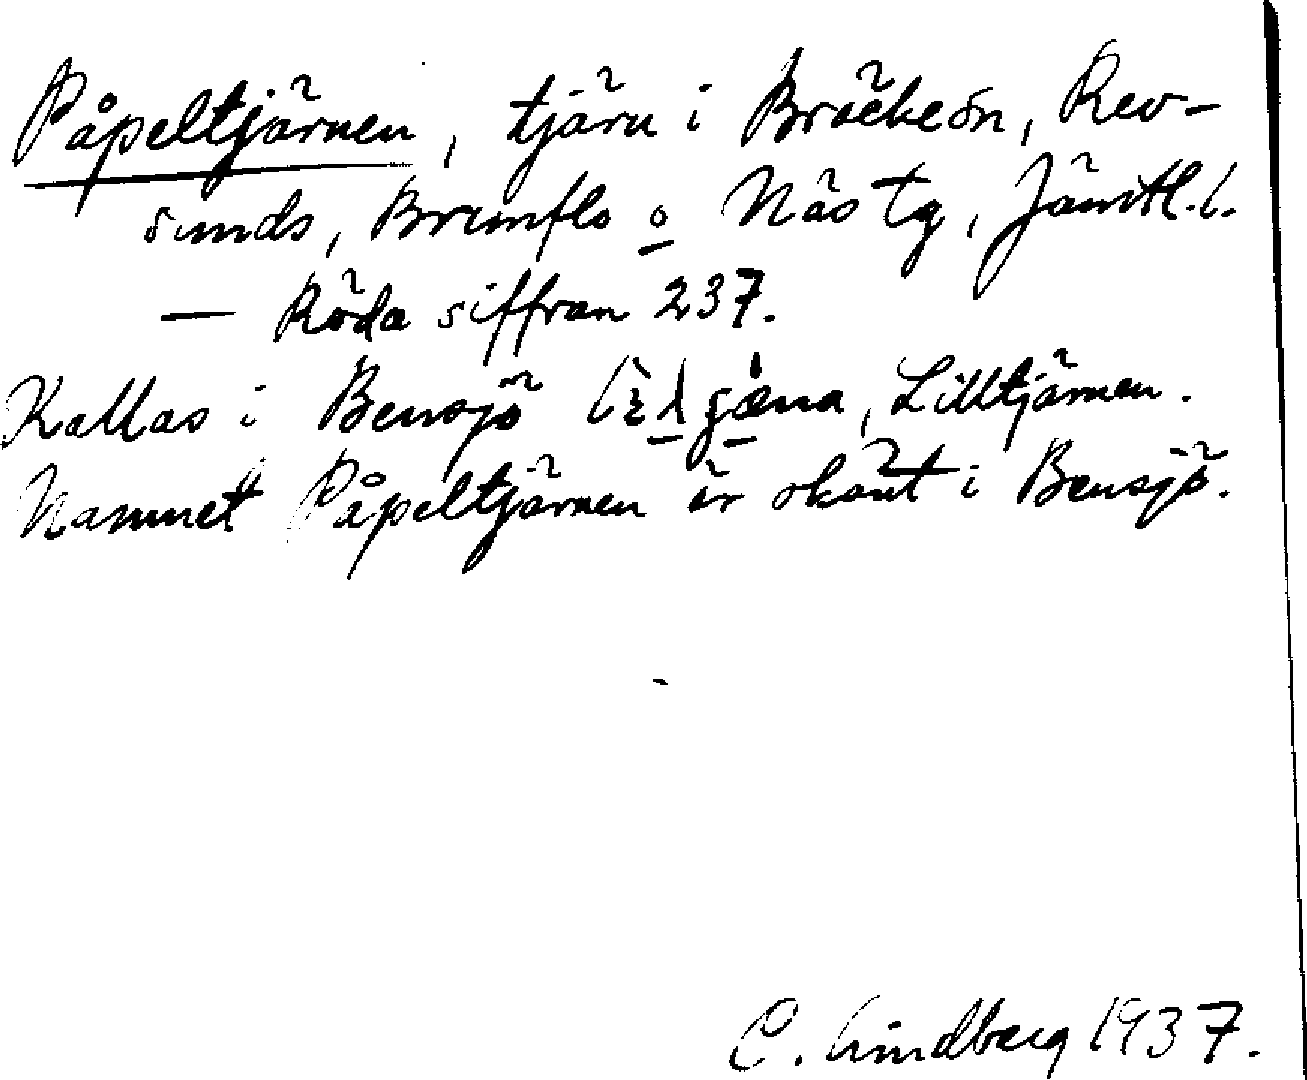 Påpeltjärnen, tjärn i Bräcke sn, Rev-
sunds, Brunflo o Näs tg, Jämtl. l.
— Röda siffran 237.
Kallas i Bensjö Lilltjärnen.
Namnet Påpeltjärnen är okänt i Bensjö.
C. Lindberg 1937.